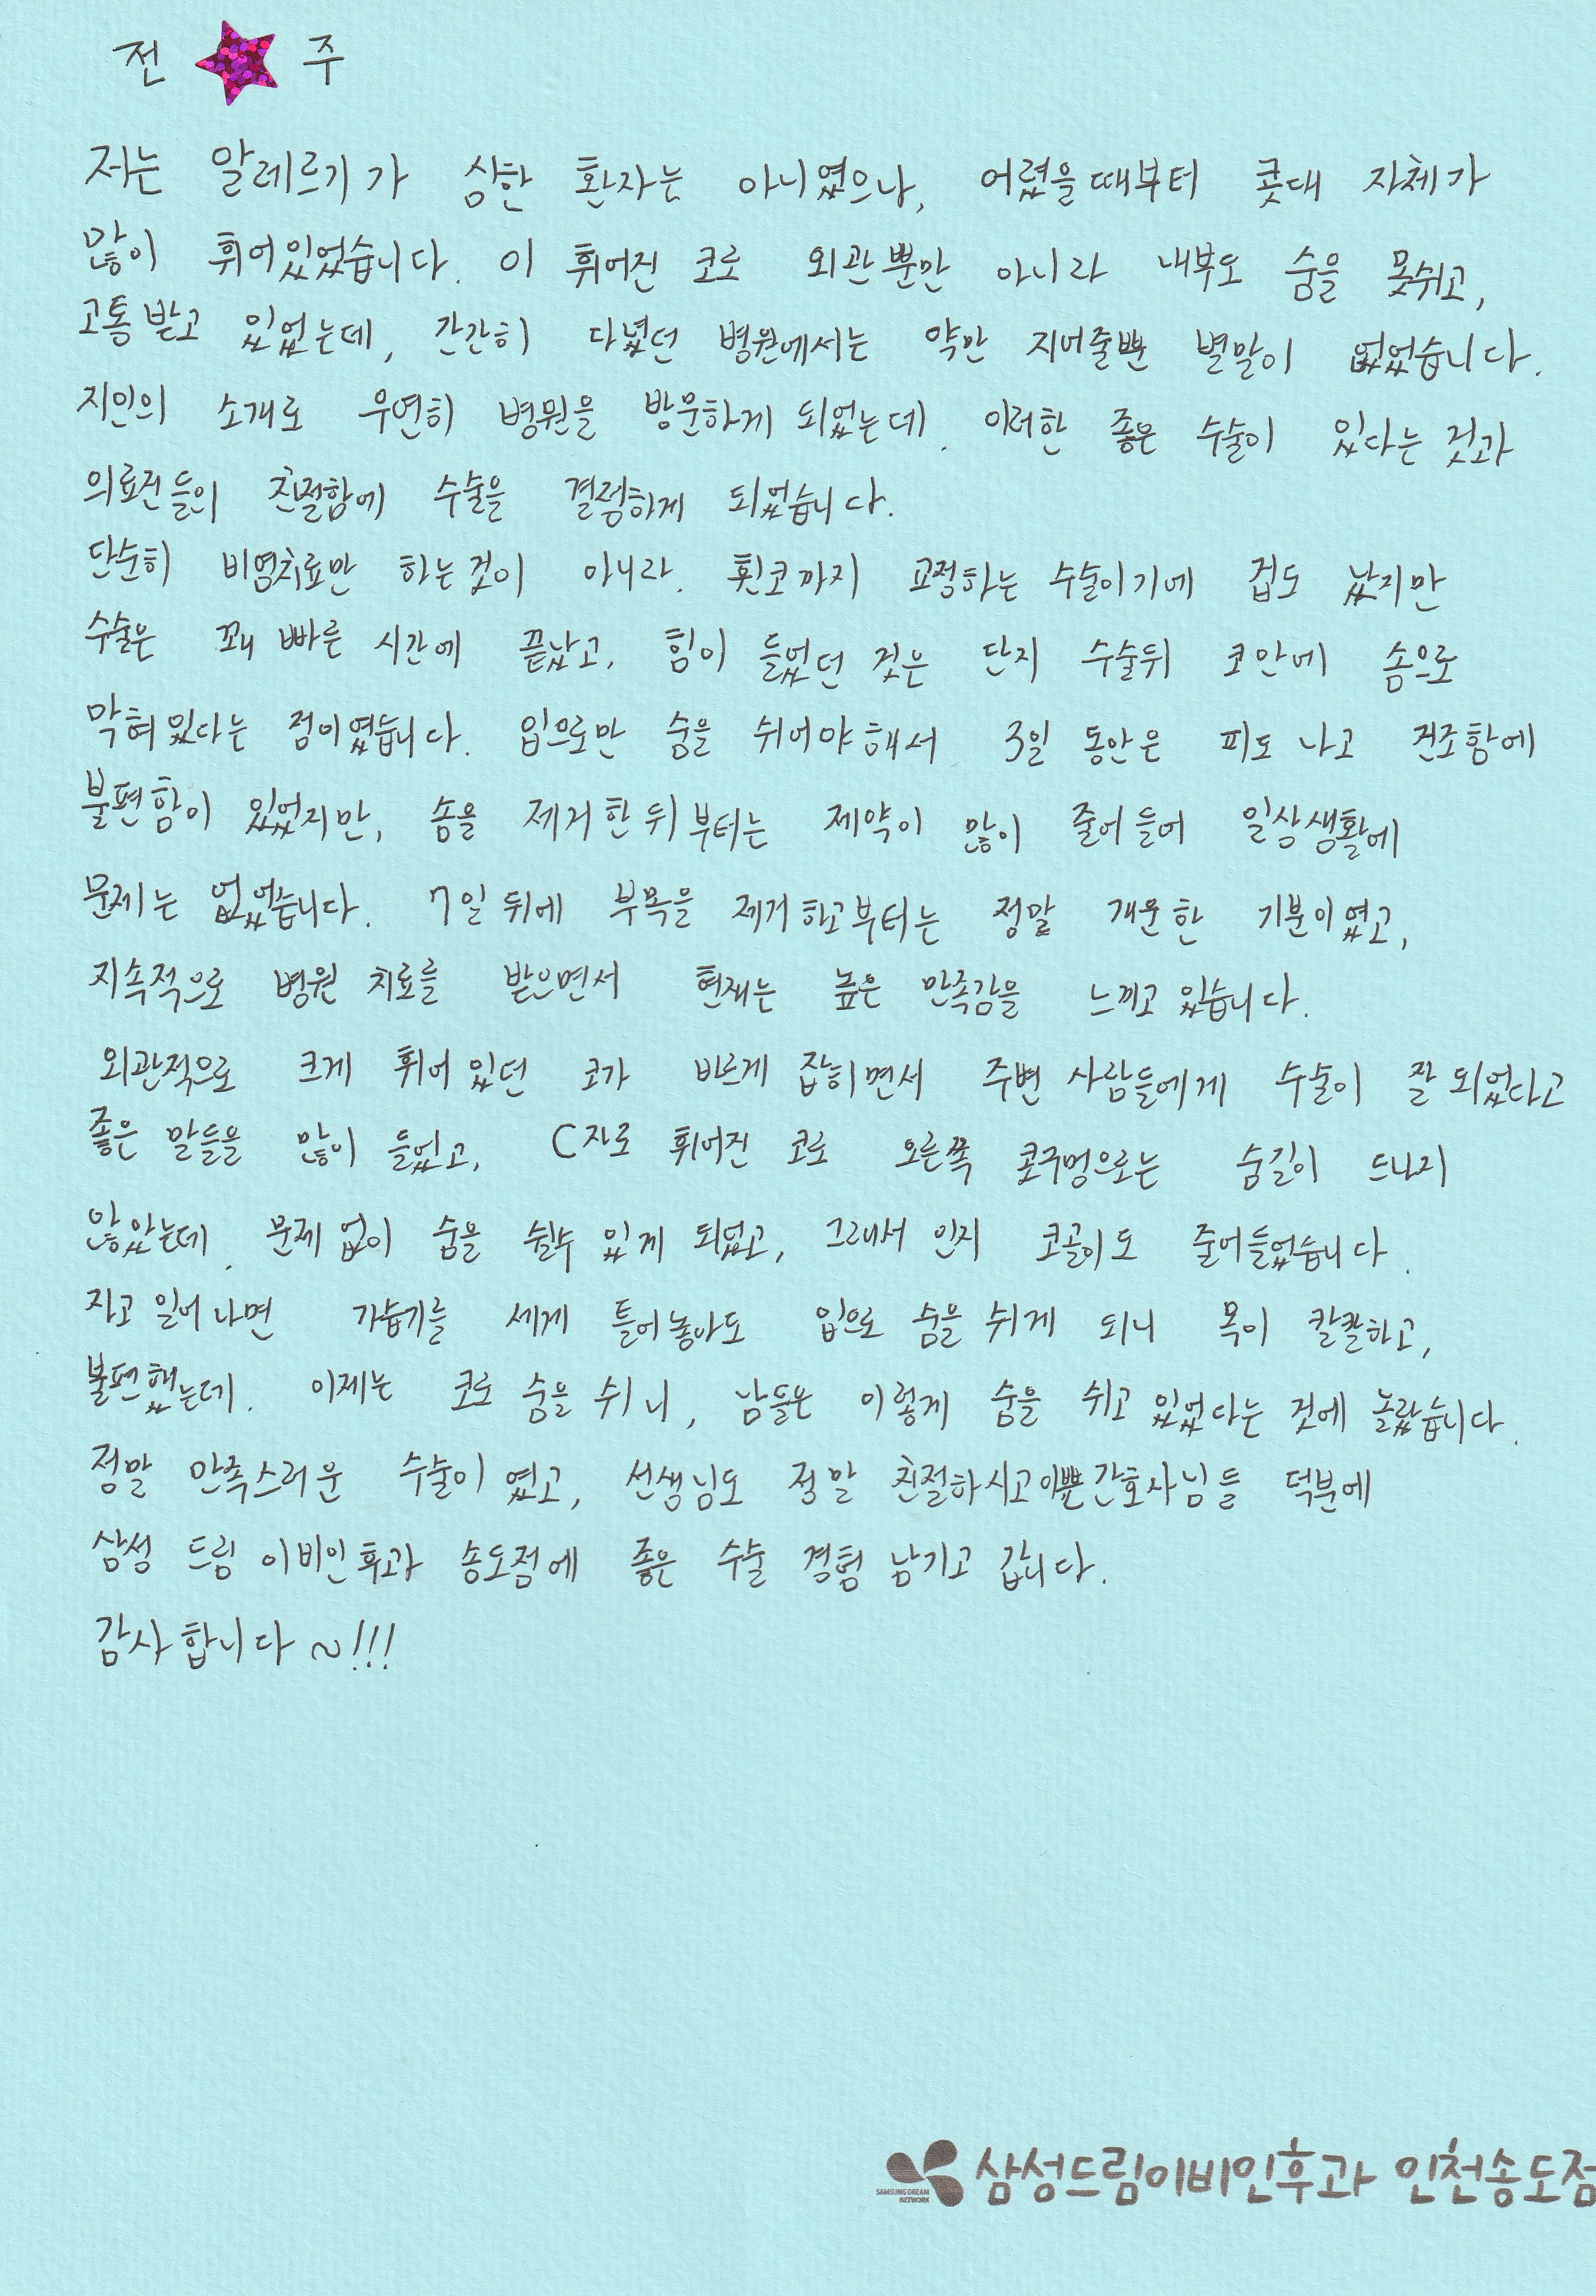 전 주
저는 알레르기가 심한 환자는 아니였으나, 어렸을때부터 콧대 자체가
많이 휘어있었습니다. 이 휘어진 코로 외관뿐만 아니라 내부도 숨을 못쉬고,
고통받고 있었는데, 간간히 다녔던 병원에서는 약만 지어줄뿐 별말이 없었습니다.
지인의 소개로 우연히 병원을 방문하게 되었는데. 이러한 좋은 수술이 있다는 것과
의료진들의 친절함에 수술을 결정하게 되었습니다.
단순히 비염치료만 하는것이 아니라. 휜코까지 교정하는 수술이기에 겁도 났지만
수술은 꽤 빠른 시간에 끝났고, 힘이 들었던 것은 단지 수술뒤 코안에 솜으로
막혀있다는 점이였습니다. 입으로만 숨을 쉬어야해서 3일 동안은 피도 나고 건조함에
불편함이 있었지만, 솜을 제거한뒤부터는 제약이 많이 줄어들어 일상생활에
문제는 없었습니다. 7일뒤에 부목을 제거하고부터는 정말 개운한 기분이였고,
지속적으로 병원 치료를 받으면서 현재는 높은 만족감을 느끼고있습니다.
외관적으로 크게 휘어있던 코가 바르게 잡히면서 주변 사람들에게 수술이 잘되었다고
좋은 말들을 많이 들었고, C자로 휘어진 코로 오른쪽 콧구멍으로는 숨길이 드나지
않았는데. 문제없이 숨을 쉴수 있게 되었고, 그래서 인지 코골이도 줄어들었습니다.
자고 일어나면 가습기를 세게 틀어놓아도 입으로 숨을 쉬게 되니 목이 칼칼하고,
불편했는데. 이제는 코로 숨을 쉬니, 남들은 이렇게 숨을 쉬고 있었다는 것에 놀랐습니다.
정말 만족스러운 수술이였고, 선생님도 정말 친절하시고이쁜간호사님들 덕분에
삼성 드림 이비인후과 송도점에 좋은 수술 경험 남기고 갑니다.
감사합니다~!!!
SAMSUNG DREAM
NETWORK
삼성드림이비인후과 인천송도점